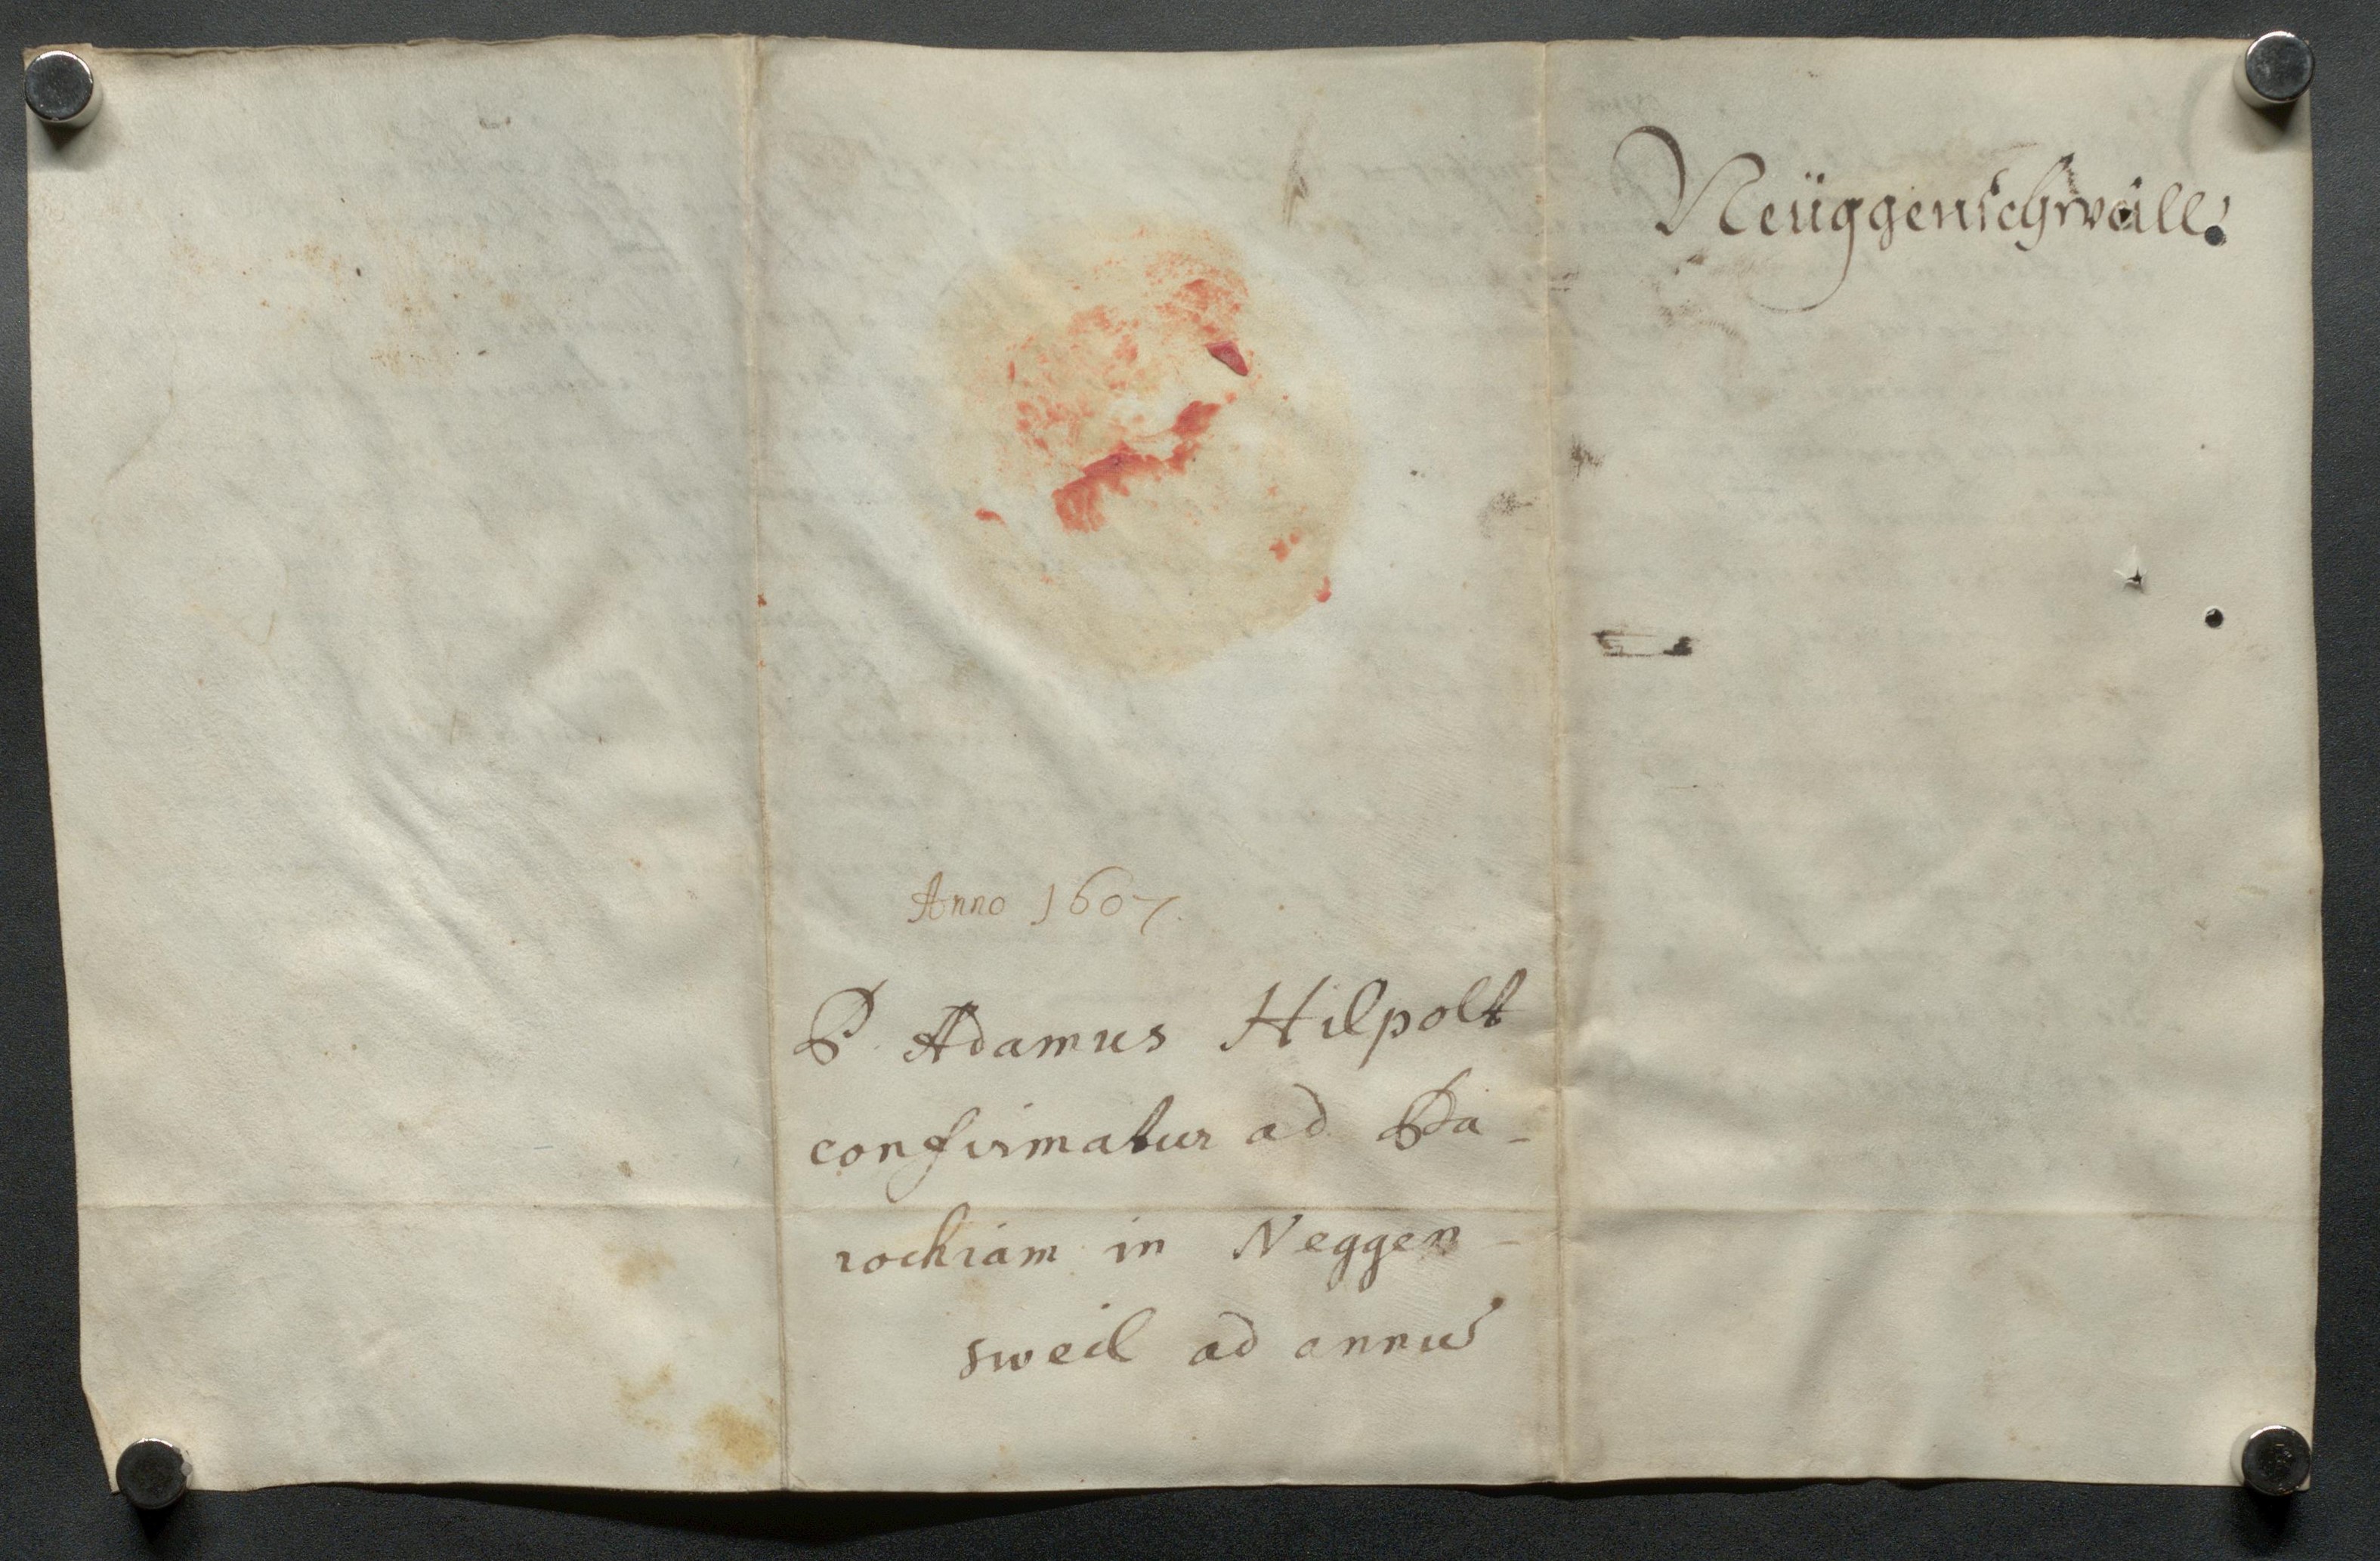 Neüggenschweill.
Anno 1607.
P. Adamus Hilpolt
confirmatur ad Pa-
rochiam in Neggen-
sweil ad annu